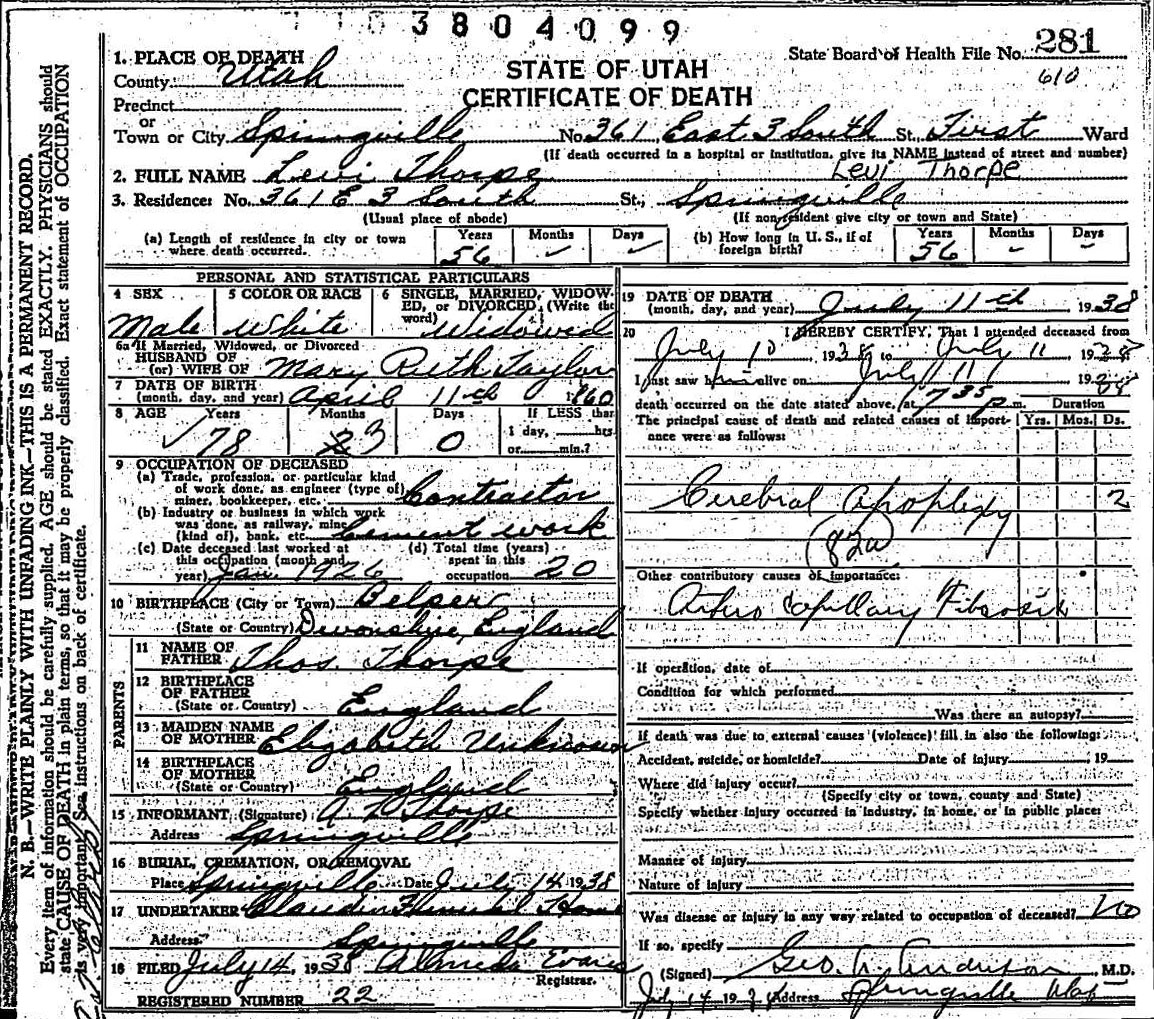 3804099
State Board of Health File No. 281
610
STATE OF UTAH
CERTIFICATE OF DEATH
1. PLACE OF DEATH
County Utah
Precinct
or
Town or City Springville No. 361 East 3 South St. First Ward
(If death occurred in a hospital or institution, give its NAME instead of street and number)
2. FULL NAME Levi Thorpe Levi Thorpe
3. Residence: No. 361 E 3 South St., Springville
(Usual place of abode) (If nonresident give city or town and State)
(a) Length of residence in city or town where death occurred. Years 56 Months - Days -
(b) How long in U. S., if of foreign birth? Years 56 Months - Days -
PERSONAL AND STATISTICAL PARTICULARS
4 SEX Male
5 COLOR OR RACE White
6 SINGLE, MARRIED, WIDOWED, or DIVORCED, (Write the word) Widowed
6a If Married, Widowed, or Divorced
HUSBAND OF
(or) WIFE OF Mary Ruth Taylor
7 DATE OF BIRTH
(month, day, and year) April 11th 1860
8 AGE Years 78 Months 3 Days 0 If LESS than 1 day, hrs. or min.?
9 OCCUPATION OF DECEASED
(a) Trade, profession, or particular kind of work done, as engineer (type of) miner, bookkeeper, etc. Contractor
(b) Industry or business in which work was done, as railway, mine (kind of), bank, etc. Cement work
(c) Date deceased last worked at this occupation (month and year) Jan. 1926
(d) Total time (years) spent in this occupation 20
10 BIRTHPLACE (City or Town) Belper
(State or Country) Devonshire, England
PARENTS
11 NAME OF FATHER Thos. Thorpe
12 BIRTHPLACE OF FATHER
(State or Country) England
13 MAIDEN NAME OF MOTHER Elizabeth Unknown
14 BIRTHPLACE OF MOTHER
(State or Country) England
15 INFORMANT (Signature) Thorpe
Address Springville
16 BURIAL, CREMATION, OR REMOVAL
Place Springville Date July 14 1938
17 UNDERTAKER Claudin Funeral Home
Address Springville
18 FILED July 14, 1938 Almeda Evans
Registrar.
REGISTERED NUMBER 22
19 DATE OF DEATH
(month, day, and year) July 11th 1938
20 I HEREBY CERTIFY, That I attended deceased from
July 10 1938 to July 11 1938
I last saw him alive on July 11 1938
death occurred on the date stated above, at 7 35 p m. Duration
The principal cause of death and related causes of importance were as follows: Yrs. Mos. Ds.
Cerebral Apoplexy 2
(82a)
Other contributory causes of importance:
Arterio Capillary Fibrosis
If operation, date of
Condition for which performed
Was there an autopsy?
If death was due to external causes (violence) fill in also the following:
Accident, suicide, or homicide? Date of injury , 19
Where did injury occur?
(Specify city or town, county and State)
Specify whether injury occurred in industry, in home, or in public place:
Manner of injury
Nature of injury
Was disease or injury in any way related to occupation of deceased? No
If so, specify
(Signed) Geo. Anderson, M.D.
July 14 19 Address Springville Utah
N. B.—WRITE PLAINLY WITH UNFADING INK—THIS IS A PERMANENT RECORD.
Every item of information should be carefully supplied. AGE should be stated EXACTLY. PHYSICIANS should
state CAUSE OF DEATH in plain terms, so that it may be properly classified. Exact statement of OCCUPATION
is very important. See instructions on back of certificate.